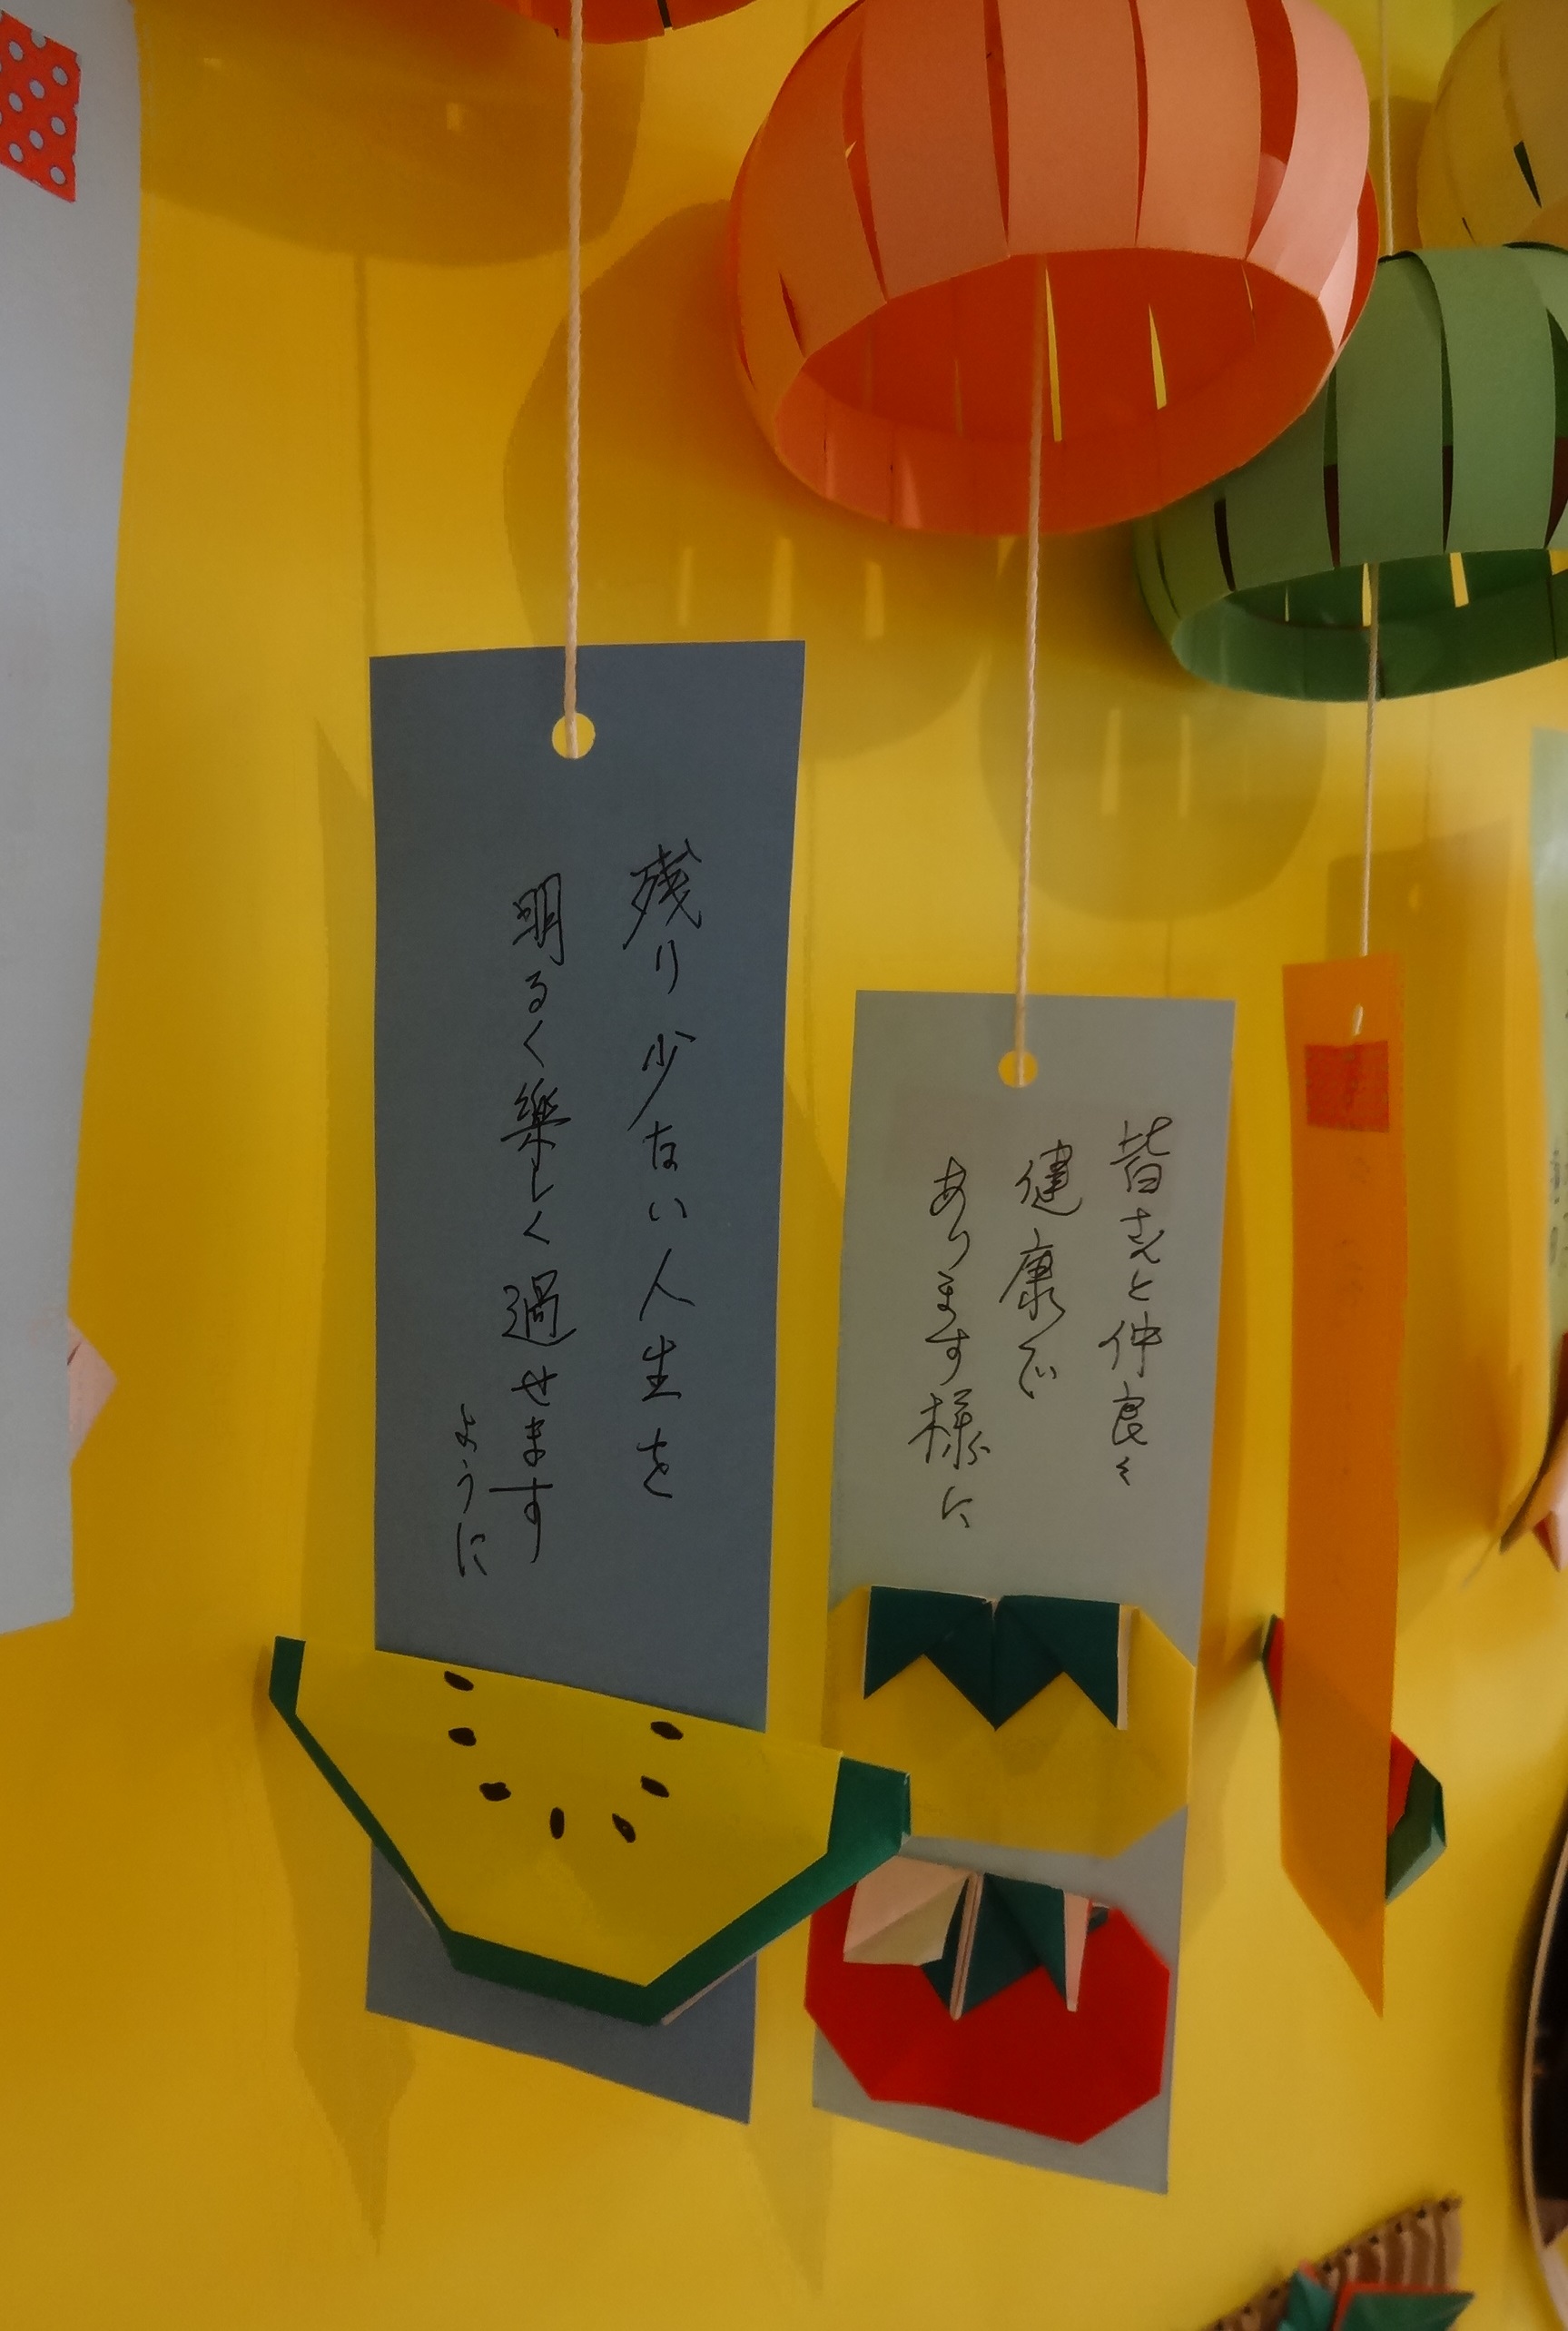 残り少ない人生を
明るく楽しく過せます
ように
皆さんと仲良く
健康で
あります様に